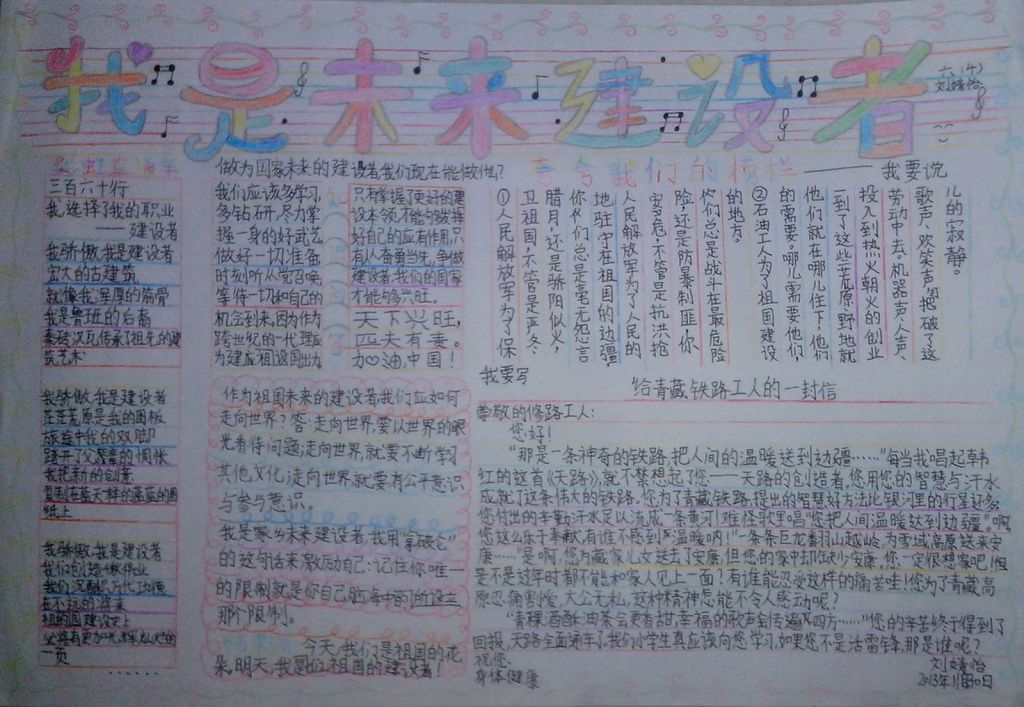 我是未来建设者
六（4）
刘婧怡
三百六十行
我选择了我的职业
——建设者
我骄傲,我是建设者
宏大的古建筑
就像我浑厚的筋骨
我是鲁班的后裔
秦砖汉瓦传承了祖先的建
筑艺术
我骄傲,我是建设者
茫茫荒原是我的图板
旅途中我的双脚
我把新的创意
复制在蓝天样的蓝蓝的图
纸上
我骄傲,我是建设者
我们创造着伟业
祖国建设史上
一页
......
做为国家未来的建设者我们现在能做什么?
我们应该多学习,
多钻研,尽力掌
握一身的好武艺
做好一切准备
时刻听从党召唤,
等待一切和自己的
机会到来,因为作为
跨世纪的一代理应
为建应祖设国出力
只有掌握了更好的建
设本领,才能够发挥
好自己的应有作用,只
有人人奋勇当先,争做
建设者,我们的国家
才能够兴旺。
天下兴旺,
匹夫有责。
加油,中国!
作为祖国未来的建设者我们应如何
走向世界?答:走向世界,要以世界的眼
光看待问题;走向世界,就要不断学习
其他文化;走向世界就要有公平意识
与参与意识。
我是家乡未来建设者,我用“拿破仑”
的这句话来激励自己:记住你唯一
的限制就是你自己脑海中的所设立
那个限制。
今天,我们是祖国的花
朵,明天,我是们祖国的建设者!
夸夸我们的榜样——我要说
①人民解放军为了保
卫祖国,不管是严冬
腊月,还是骄阳似火,
你们总是毫无怨言
地驻守在祖国的边疆,
人民解放军为了人民的
安危,不管是抗洪抢
险还是防暴制匪,你
们总是战斗在最危险
的地方。
②石油工人为了祖国建设
的需要。哪儿需要他们
他们就在哪儿住下!他们
一到了这些荒原野地就
投入到热火朝火的创业
劳动中去,机器声,人声、
歌声、欢笑声,把破了这
儿的寂静。
我要写
给青藏铁路工人的一封信
尊敬的修路工人:
您好!
“那是一条神奇的铁路,把人间的温暖送到边疆……”每当我唱起韩
红的这首《天路》,就不禁想起了您——天路的创造者,您用您的智慧与汗水
成就了这条伟大的铁路。您为了青藏铁路,提出的智慧好方法比银河里的行星还多
您付出的辛勤汗水足以流成一条黄河!难怪歌里唱“您把人间温暖送到边疆”。啊,
您这么乐于奉献,有谁不感到温暖呐!“一条条巨龙翻山越岭,为雪域高原送来安
康……”是啊,您为藏家儿女送去了安康,但您的家中却缺少安康,您一定很想家吧!但
是不是过年时都不能和家人见上一面?有谁能忍受这样的痛苦哇!您为了青藏高
原忍痛割爱,大公无私,这种精神怎能不令人感动呢?
“青稞酒酥油茶会更香甜,幸福的歌声会传遍四方……”您的辛苦终于得到了
回报,天路全面通车了,我们小学生真应该向您学习,如果您不是活雷锋,那是谁呢?
祝您
身体健康
刘婧怡
2013年11月30日